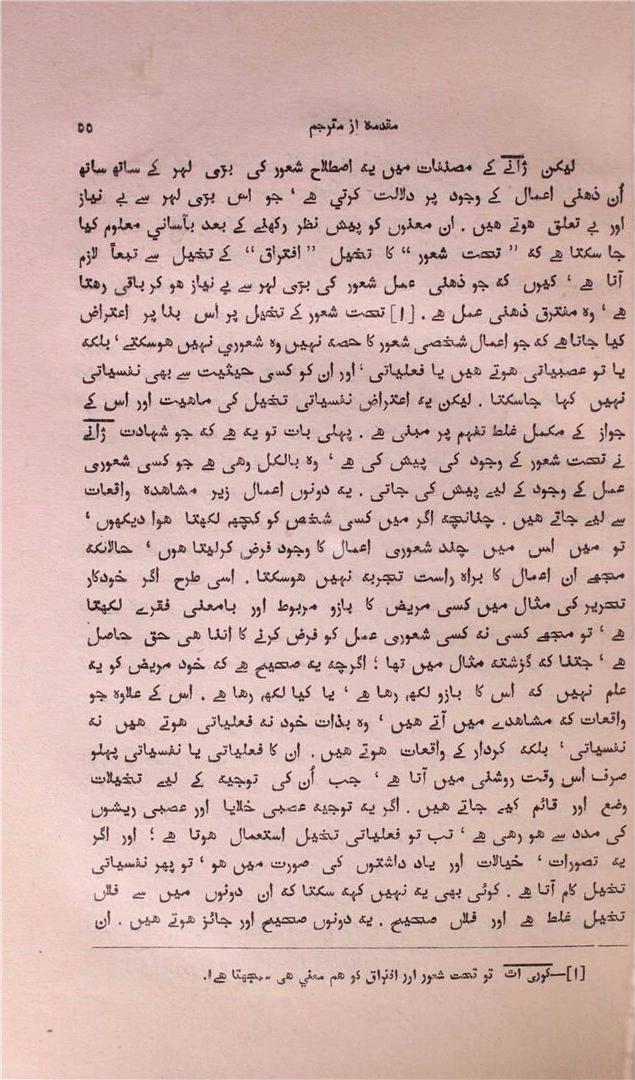 مقدمہ از مترجم ۵۵
لیکن ژانے کے مصنفات میں یہ اصطلاح شعور کی بڑی لہر کے ساتھ ساتھ
اُن ذہنی اعمال کے وجود پر دلالت کرتی ہے ' جو اس بڑی لہر سے بے نیاز
اور بے تعلق ہوتے ہیں . ان معنوں کو پیش نظر رکھنے کے بعد بآسانی معلوم کیا
جا سکتا ہے کہ " تحت شعور " کا تخیل " افتراق " کے تخیل سے تبعاً لازم
آتا ہے ' کیوں کہ جو ذہنی عمل شعور کی بڑی لہر سے بے نیاز ہو کر باقی رہتا
ہے ' وہ مفترق ذہنی عمل ہے . [۱] تحت شعور کے تخیل پر اس بنا پر اعتراض
کیا جاتا ہے کہ جو اعمال شخصی شعور کا حصہ نہیں وہ شعوری نہیں ہوسکتے ' بلکہ
یا تو عصبیاتی ہوتے ہیں یا فعلیاتی ' اور ان کو کسی حیثیت سے بھی نفسیاتی
نہیں کہا جاسکتا . لیکن یہ اعتراض نفسیاتی تخیل کی ماہیت اور اس کے
جواز کے مکمل غلط تفہم پر مبنی ہے . پہلی بات تو یہ ہے کہ جو شہادت ژانے
نے تحت شعور کے وجود کی پیش کی ہے ' وہ بالکل وہی ہے جو کسی شعوری
عمل کے وجود کے لیے پیش کی جاتی . یہ دونوں اعمال زیر مشاہدہ واقعات
سے لیے جاتے ہیں . چنانچہ اگر میں کسی شخص کو کچھ لکھتا ہوا دیکھوں '
تو میں اس میں چند شعوری اعمال کا وجود فرض کرلیتا ہوں ' حالانکہ
مجھے ان اعمال کا براہ راست تجربہ نہیں ہوسکتا . اسی طرح اگر خودکار
تحریر کی مثال میں کسی مریض کا بازو مربوط اور بامعنی فقرے لکھتا
ہے ' تو مجھے کسی نہ کسی شعوری عمل کو فرض کرنے کا اتنا ہی حق حاصل
ہے ' جتنا کہ گزشتہ مثال میں تھا ؛ اگرچہ یہ صحیح ہے کہ خود مریض کو یہ
علم نہیں کہ اس کا بازو لکھ رہا ہے ' یا کیا لکھ رہا ہے . اس کے علاوہ جو
واقعات کہ مشاہدے میں آتے ہیں ' وہ بذات خود نہ فعلیاتی ہوتے ہیں نہ
نفسیاتی ' بلکہ کردار کے واقعات ہوتے ہیں . ان کا فعلیاتی یا نفسیاتی پہلو
صرف اس وقت روشنی میں آتا ہے ' جب اُن کی توجیہ کے لیے تخیلات
وضع اور قائم کیے جاتے ہیں . اگر یہ توجیہ عصبی خلایا اور عصبی ریشوں
کی مدد سے ہو رہی ہے ' تب تو فعلیاتی تخیل استعمال ہوتا ہے ؛ اور اگر
یہ تصورات ' خیالات اور یاد داشتوں کی صورت میں ہو ' تو پھر نفسیاتی
تخیل کام آتا ہے . کوئی بھی یہ نہیں کہہ سکتا کہ ان دونوں میں سے فلاں
تخیل غلط ہے اور فلاں صحیح . یہ دونوں صحیح اور جائز ہوتے ہیں . ان
[۱]—کوری اٹ تو تحت شعور اور افتراق کو ہم معنی ہی سمجھتا ہے۱.